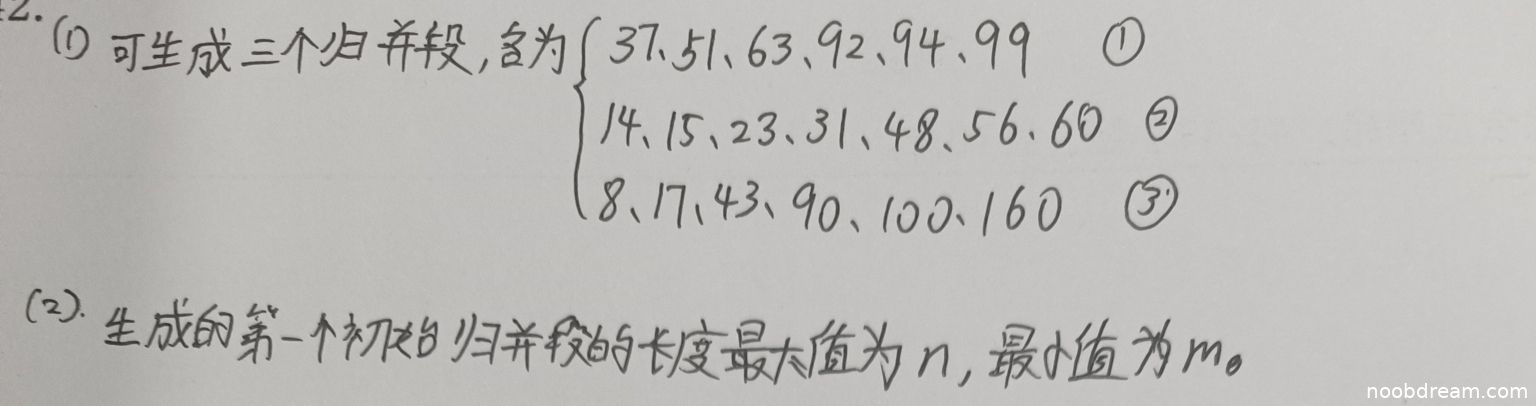 2.
(1) 可生成三个归并段,各为 37、51、63、92、94、99 ①
14、15、23、31、48、56、60 ②
8、17、43、90、100、160 ③
(2). 生成的第一个初始归并段的长度最大值为n,最小值为m。
noobdream.com